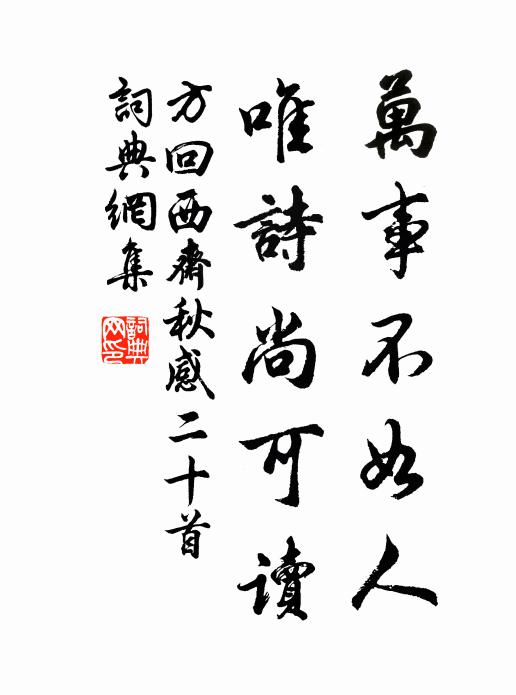 萬事不如人
唯詩尚可讀
方回西齋秋感二十首
詞典網集
詞典網印